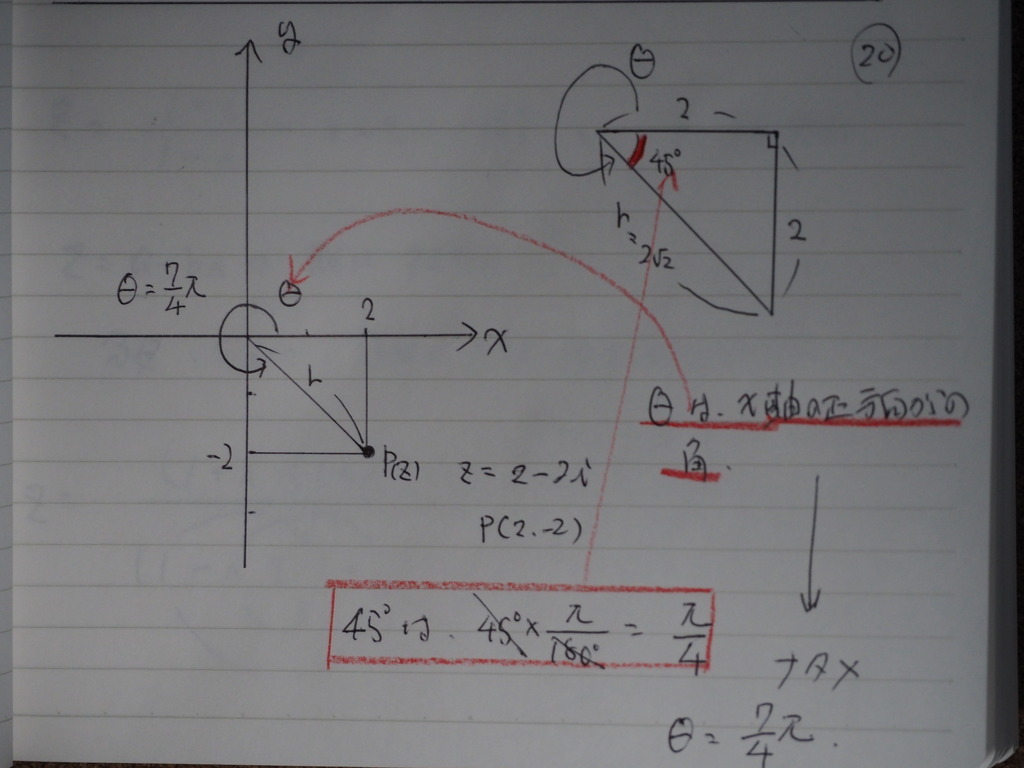 20
y
θ
2
45°
r
=
2√2
2
θ = 7/4 π
θ
2
x
r
-2
P(z) z = 2 - 2i
P(2.-2)
θ は、x軸の正方向からの
角.
45°は. 45° × π/180° = π/4
θ = 7/4 π.